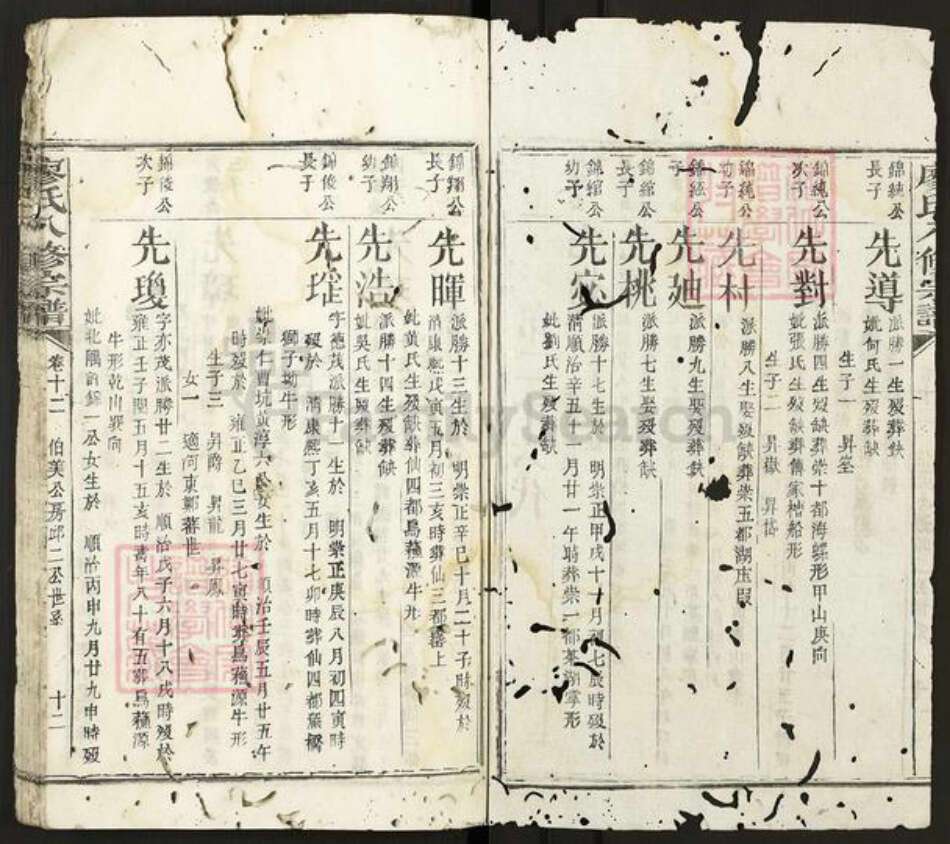 錦純公
長子
先導
派勝一生歿葬缺
妣何氏生歿葬缺
生子一 昇堂
錦純公
次子
先對
派勝四生歿缺葬崇十都海螺形甲山庚向
妣張氏生歿缺葬傅家槽船形
生子二 昇嶽 昇岱
錦純公
幼子
先村
派勝八生娶歿缺葬崇五都湖
錦紘公
子
先廸
派勝九生娶歿葬缺
錦綰公
長子
先桃
派勝七生娶歿葬缺
錦綰公
幼子
先
派勝十七生於 明崇正甲戌十一月初七辰時歿於
清順治辛丑 月廿一午時葬崇一都 形
妣劉氏生歿葬缺
錦翔公
長子
先暉
派勝十三生於 明崇正辛巳十月二十子時歿於
清康熙戊寅五月初三亥時葬仙三都 上
妣黃氏生歿缺葬仙四都烏 源牛形
錦翔公
幼子
先浩
派勝十四生歿葬缺
妣吳氏生歿葬缺
錦俊公
長子
先瑆
字德茂派勝十 生於 明崇正庚辰八月初四寅時
歿於 清康熙丁亥五月十七卯時葬仙四都
獅子坳牛形
妣 仁 坑黃淳六公女生於 順治壬辰五月廿五午
時歿於 雍正乙巳三月廿七寅時葬烏 源牛形
生子三 昇爵 昇龍 昇鳳
女一 適河東鄭蕃世
錦俊公
次子
先瓊
字亦茂派勝廿二生於 順治戊子六月十八戌時歿於
雍正壬子閏五月十五亥時壽年八十有五葬烏 源
牛形乾山巽向
妣北隅 錦一公女生於 順治丙申九月廿九申時歿
廖氏八修宗譜
卷十二
伯美公房邱二公世系
十二